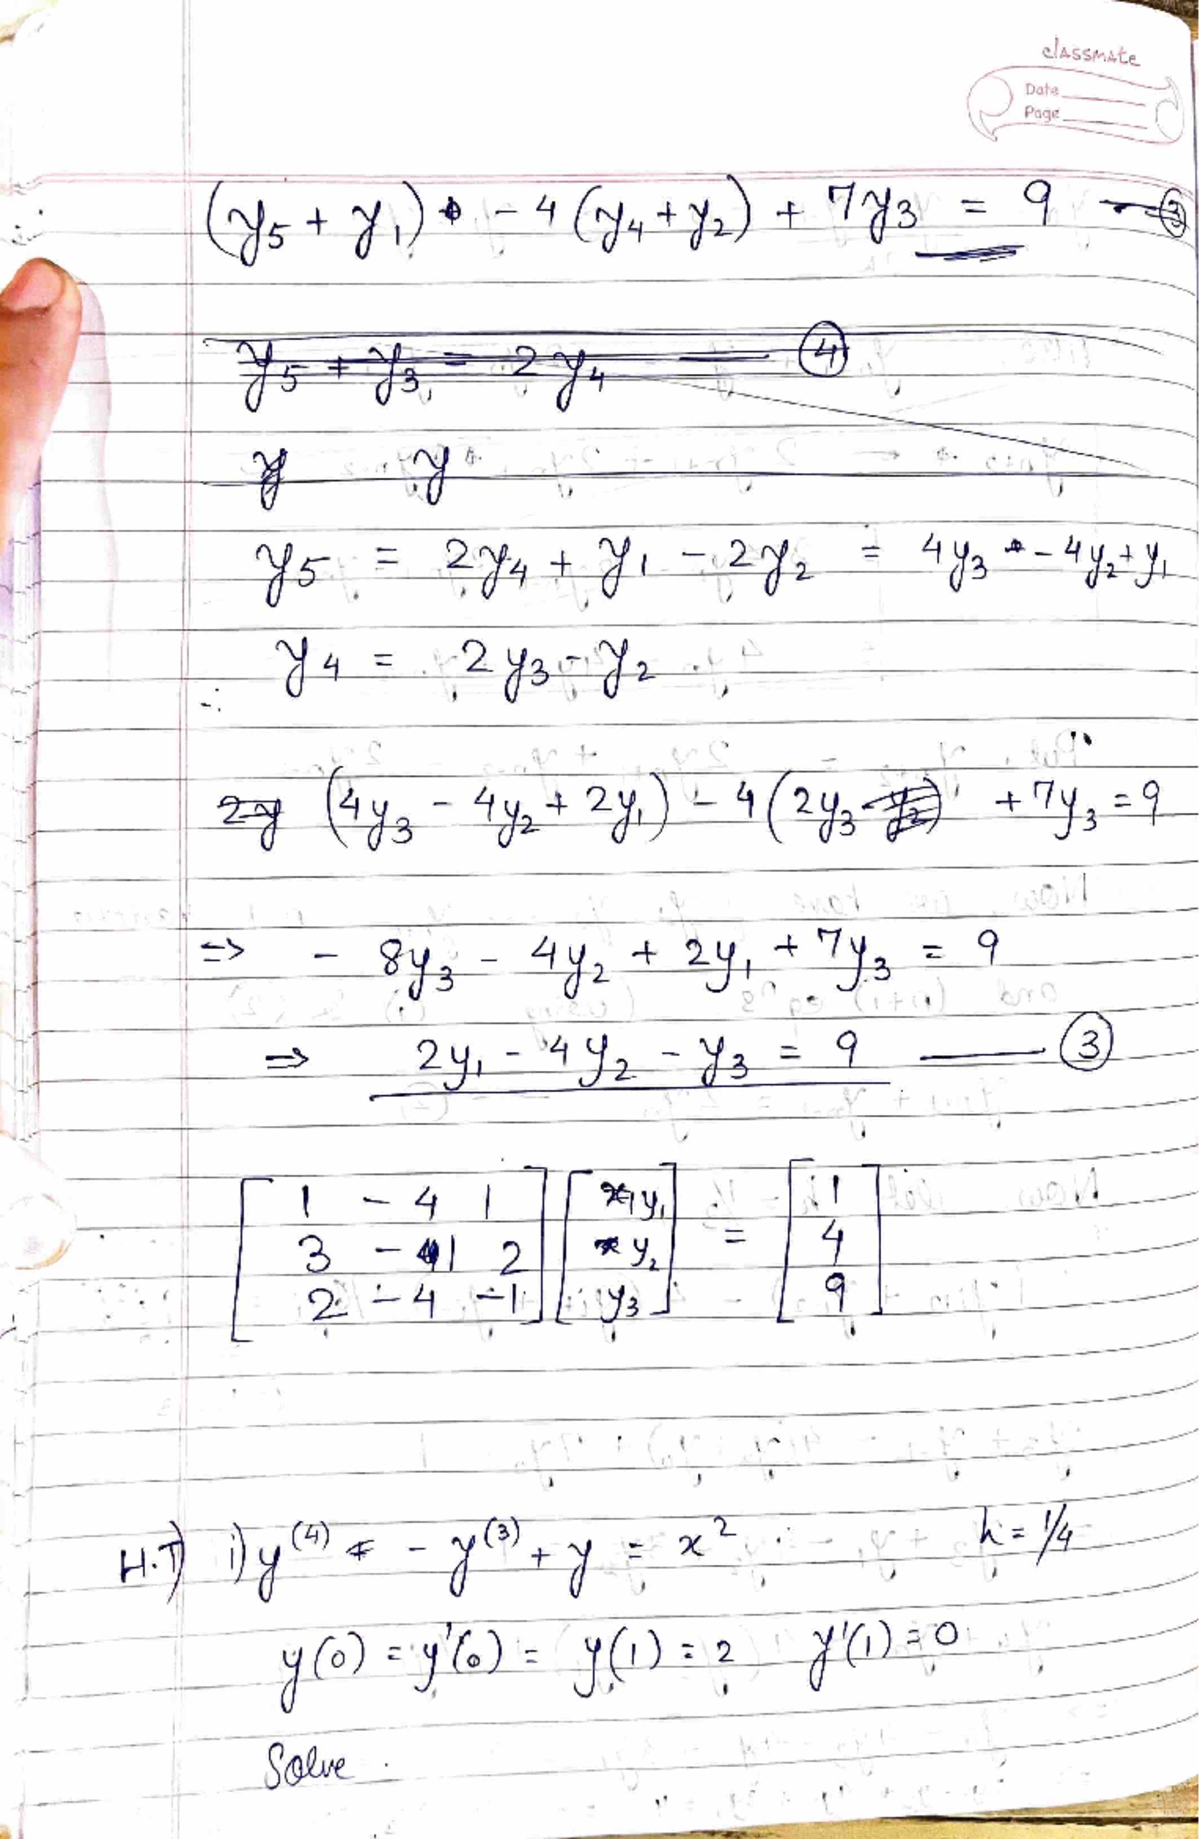 classmate
Date
Page
(y₅ + y₁) - 4 (y₄ + y₂) + 7y₃ = 9 — ③
y₅ + y₃ = 2y₄ — ④
y y
y₅ = 2y₄ + y₁ - 2y₂ = 4y₃ - 4y₂ + y₁
y₄ = 2y₃ - y₂
∴
2y (4y₃ - 4y₂ + 2y₁) - 4 (2y₃ - y₂) + 7y₃ = 9
⇒ - 8y₃ - 4y₂ + 2y₁ + 7y₃ = 9
⇒ 2y₁ - 4y₂ - y₃ = 9 — ③
[1 -4 1] [y₁] = [1]
[3 -1 2] [y₂] = [4]
[2 -4 -1] [y₃] = [9]
H.T) i) y⁽⁴⁾ - y⁽³⁾ + y = x² h = 1/4
y(0) = y'(0) = y(1) = 2 y'(1) = 0
Solve.